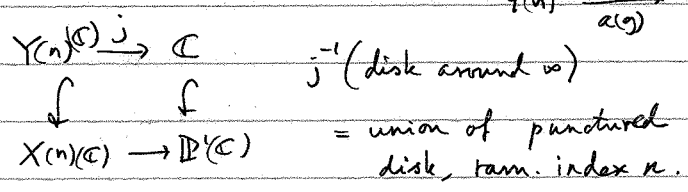 a(g)
Y(n)(ℂ) —j→ ℂ j⁻¹(disk around ∞)
X(n)(ℂ) → ℙ¹(ℂ) = union of punctured
disk, ram. index n.